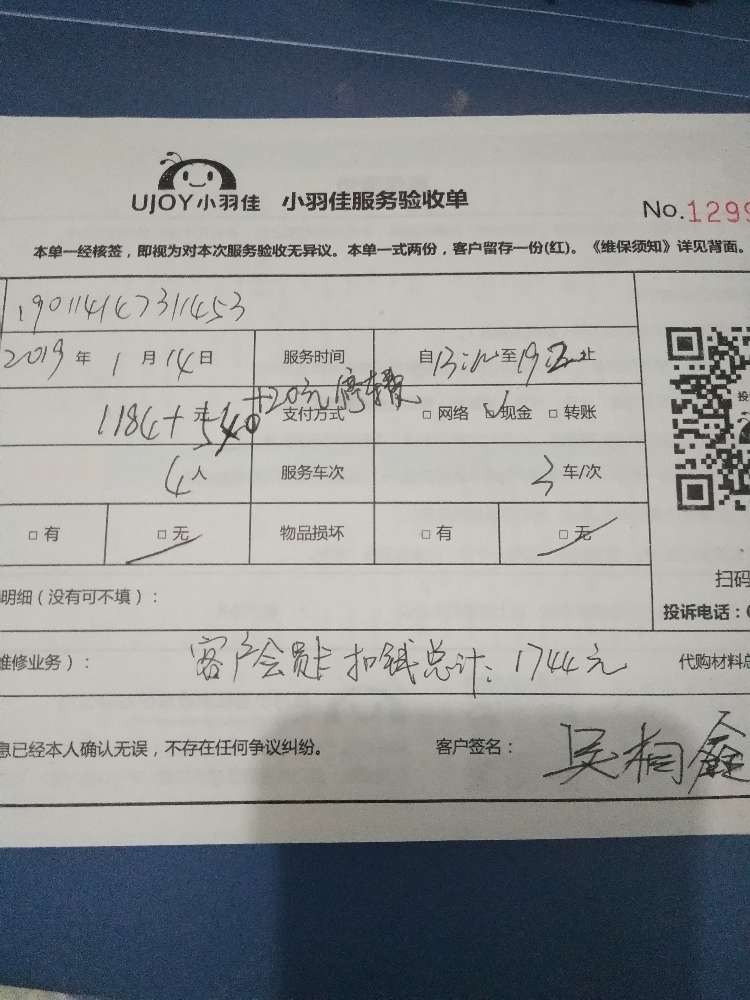 UJOY小羽佳 小羽佳服务验收单
No.1299
本单一经核签，即视为对本次服务验收无异议。本单一式两份，客户留存一份(红)。《维保须知》详见背面。
190114167311453
2019年1月14日 服务时间 自13: 至19: 止
1184+元540+20元停车费 支付方式 □网络 ☑现金 □转账
4人 服务车次 3车/次
□有 □无 物品损坏 □有 □无
扫码
明细（没有可不填）：
投诉电话：
维修业务）： 客户会员卡扣钱总计：1744元 代购材料总
息已经本人确认无误，不存在任何争议纠纷。 客户签名：吴桐鑫